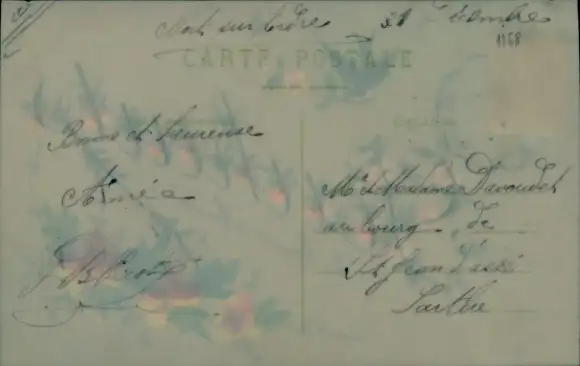 sur
31 Décembre
1168
CARTE POSTALE
Bonne et heureuse
Année
Mr et Madame Davoudet
au bourg de
St Jean d'assé
Sarthe